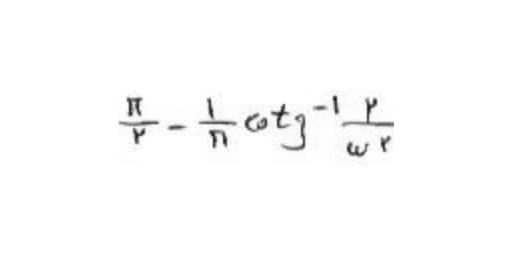 π/۲ - ۱/π cotg⁻¹ ۲/ω۲